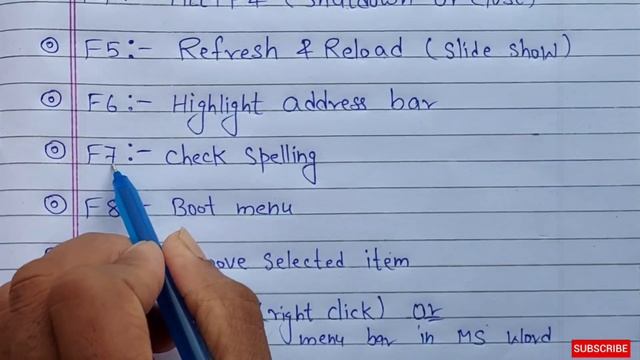 F5:- Refresh & Reload (Slide show)
F6:- Highlight address bar
F7:- check spelling
F8:- Boot menu
ove selected item
(right click) or
menu bar in MS Word
SUBSCRIBE